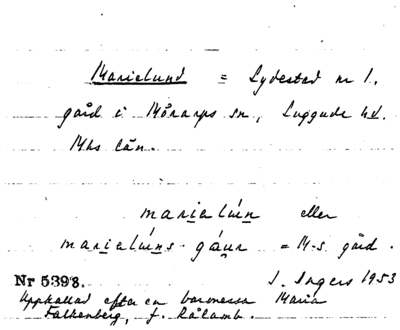 Marielund = Lydestad nr 1.
gård i Mörarps sn, Luggude hd.
Mhs län.
marielún eller
marielúns gáur = M-s gård.
Nr 5398. I. Ingers 1953
Uppkallad efter en baronessa Maria
Falkenberg, f. Rålamb.